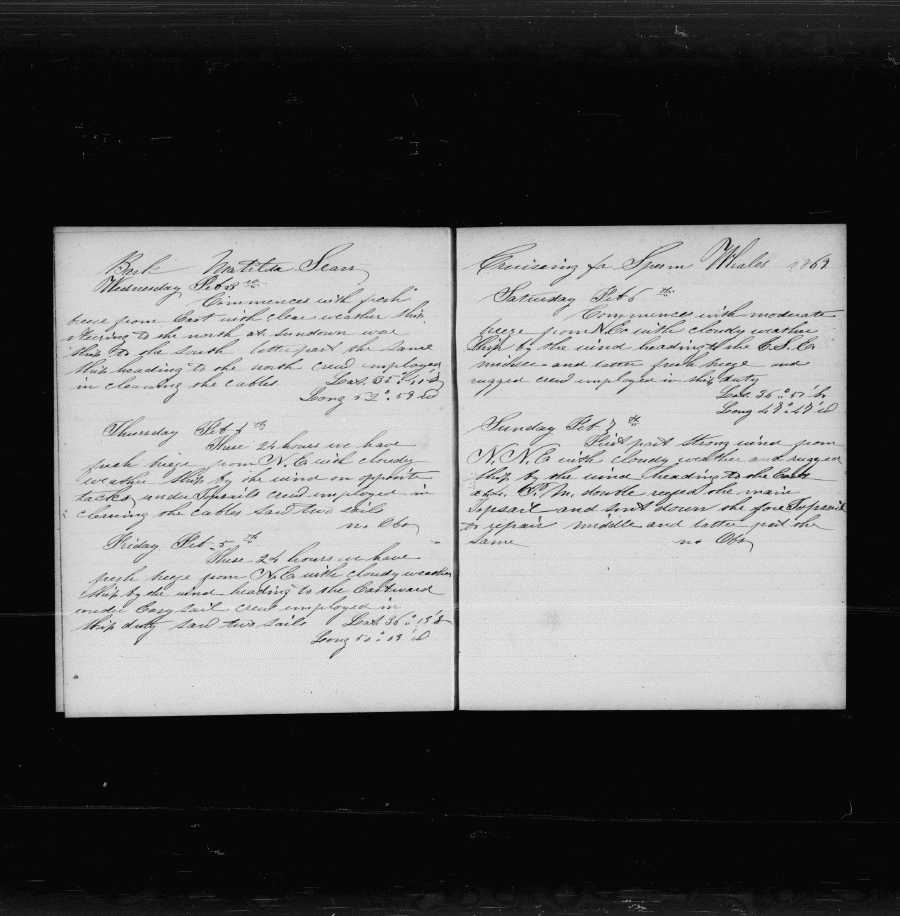 Bark Matilda Sears
Wednesday Feb 3th
Commences with fresh
breze from East with clear weather ship
steering to the north at sundown wore
ship to the south latter part the same
ship heading to the north crew employed
in cleaning the cables Lat. 35°
Long 52° 59' W
Thursday Feb 4th
These 24 hours we have
fresh breze from N.E with cloudy
weather ship by the wind on opposite
tacks under Topsails crew employed in
cleaning the cables saw two sails
no Obs
Friday Feb 5th
These 24 hours we have
fresh breze from N.E with cloudy weather
ship by the wind heading to the Eastward
under Easy sail crew employed in
ship duty saw two sails Lat 36° 13' S
Long 50° 03' W
Cruissing for Sperm Whales 1869
Saturday Feb 6th
Commences with moderate
breze from N.E with cloudy weather
Ship by the wind heading to the E.S.E
middle and latter fresh breze and
rugged crew employed in ship duty
Lat. 36° 57' S
Long 48° 47' W
Sunday Feb 7th
First part strong wind from
N.N.E with cloudy weather and rugged
ship by the wind heading to the East
at 4 P.M. double reefed the main
Topsail and sent down the fore Topsail
to repair middle and latter part the
same no Obs